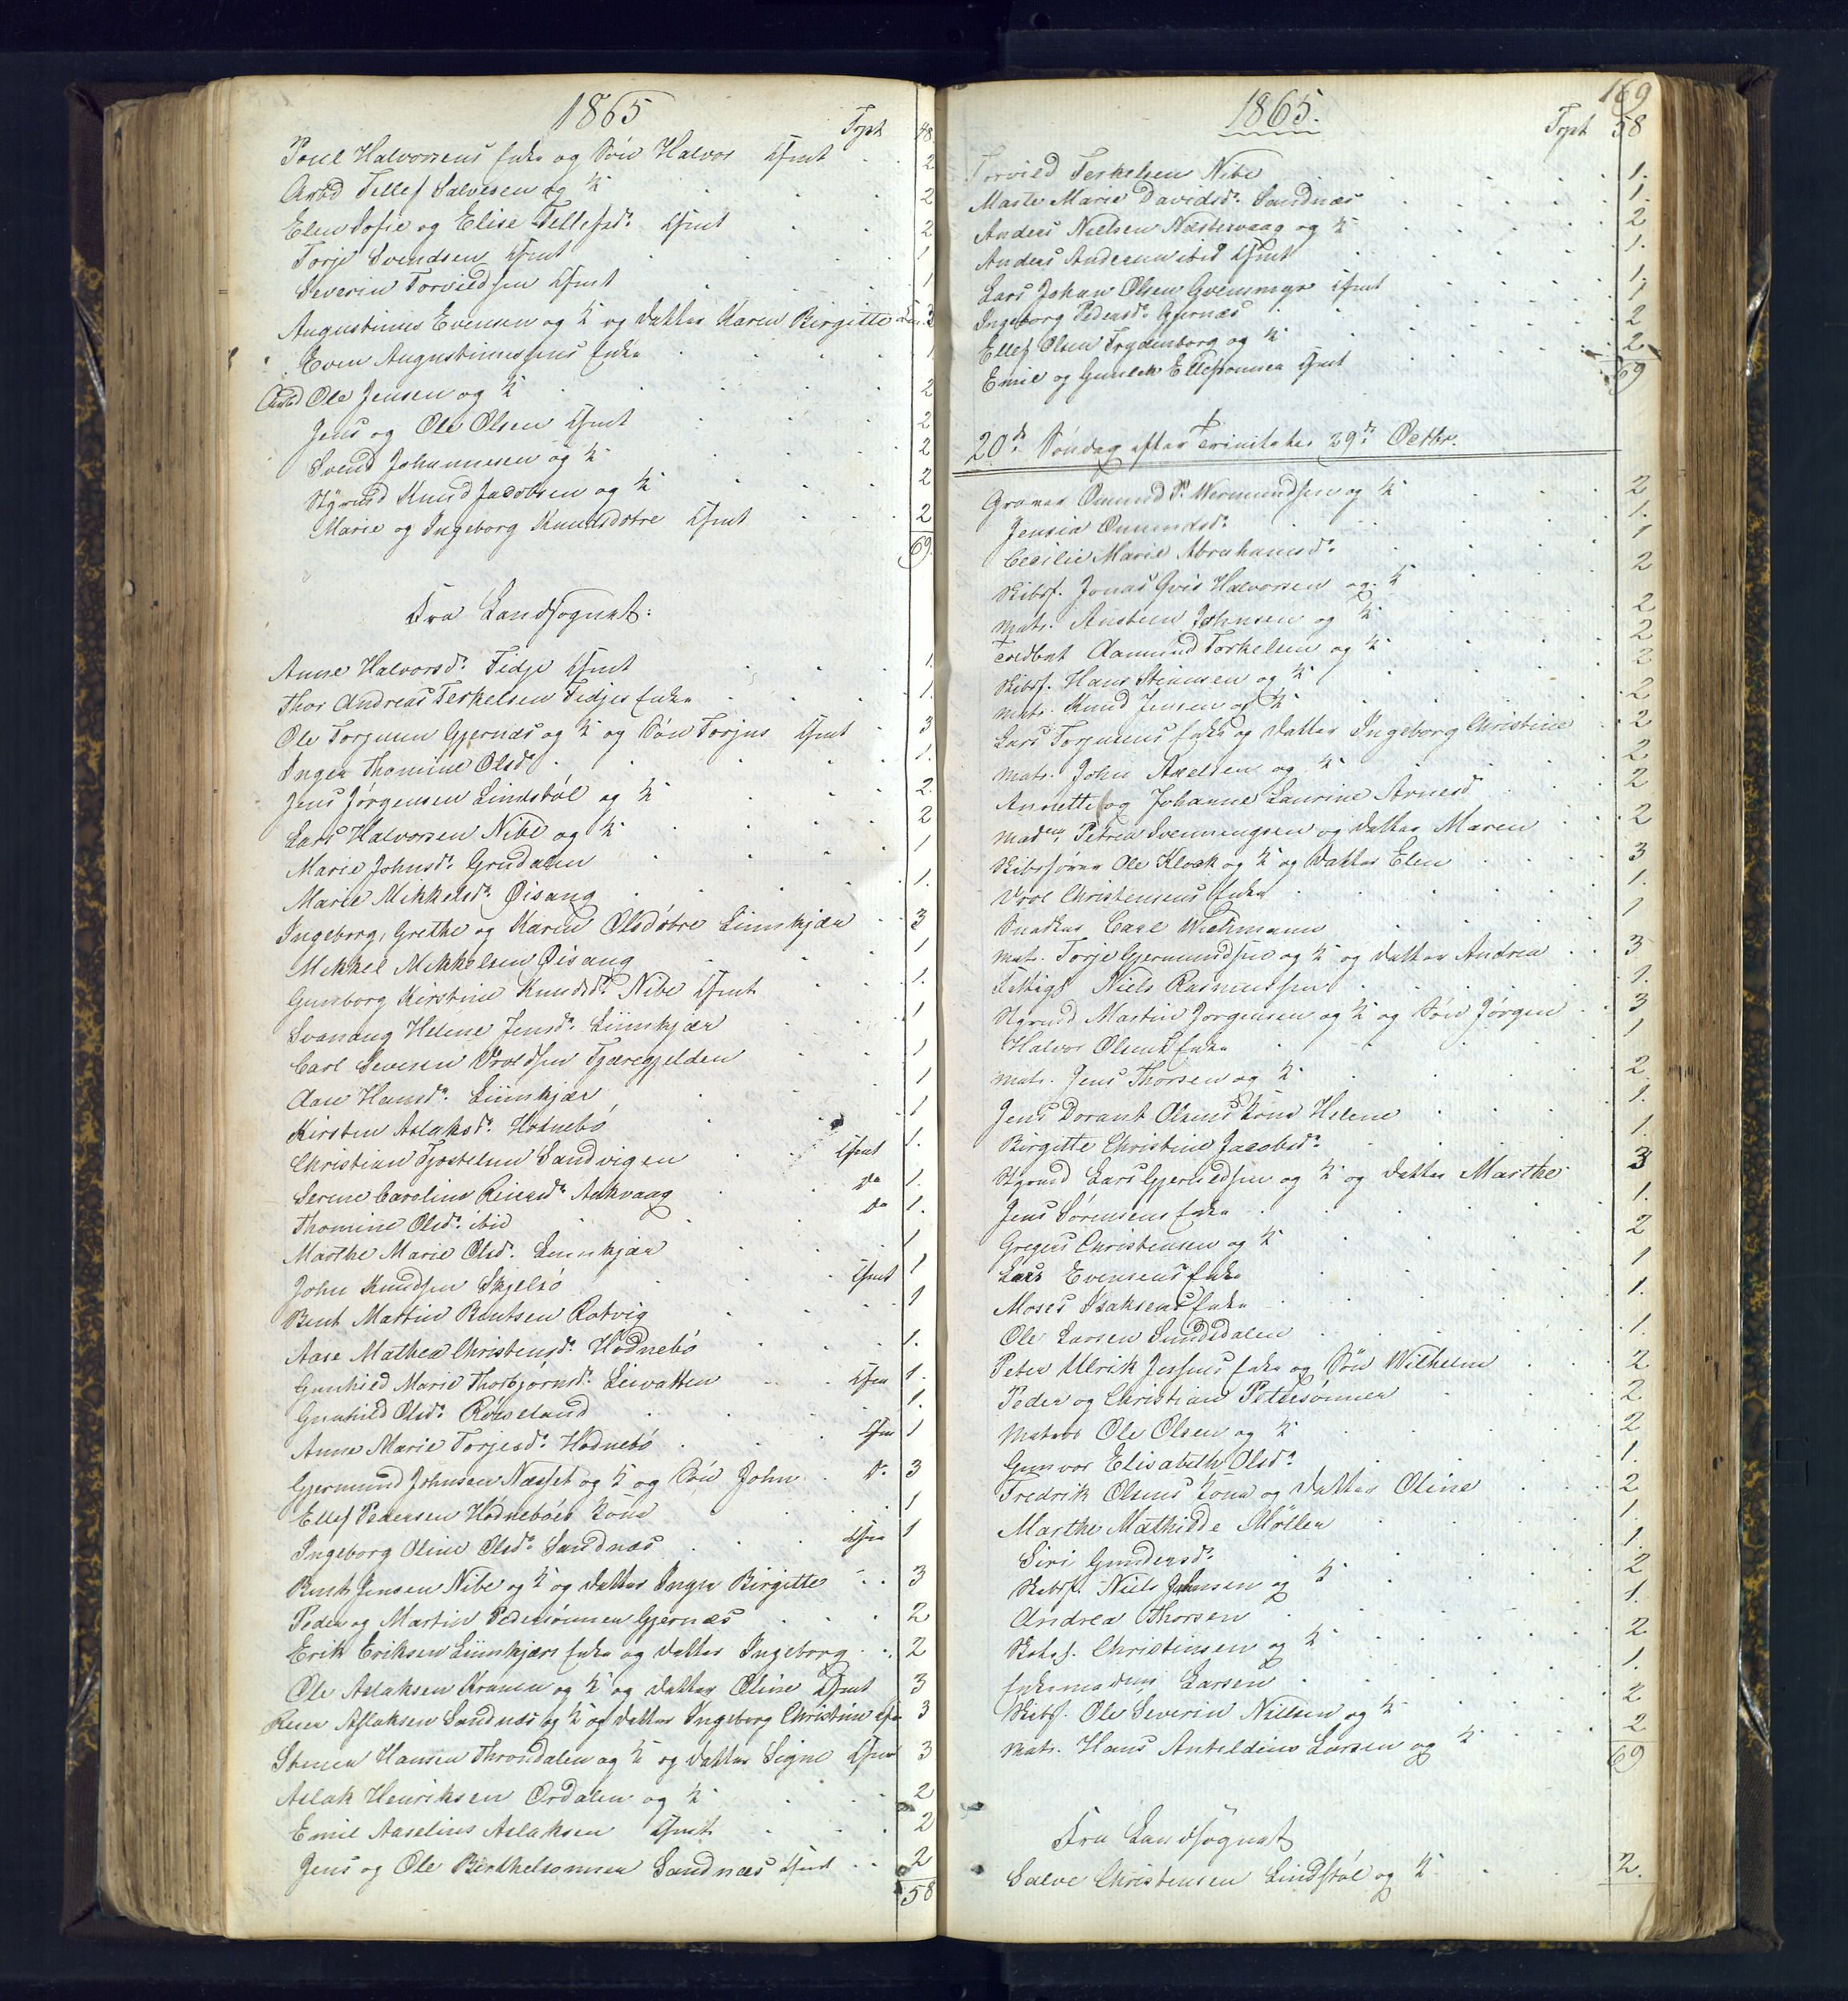 1865
Trpt 48
Poul Halvorsens Enke og Sön Halvor Cfmt 2
Arbd Tellef Salvesen og K 2
Elen Sofie og Elise Tellefsd. Cfmt 2
Torje Svendsen Cfmt 1
Severin Torvildsen Cfmt 1
Augustinus Evensen og K og datter Karen Birgitte 3
Even Augustinussens Enke 1
Arbd Ole Jensen og K 2
Jens og Ole Olsen Cfmt 2
Svend Johannesen og K 2
Styrmd Knud Jacobsen og K 2
Marie og Ingeborg Knudsdøtre Cfmt 2
69
Fra Landsognet:
Anne Halvorsd. Fidje Cfmt 1.
Thor Andreas Terkelsen Fidjes Enke 1.
Ole Torjusen Gjernæs og K og Sön Torjus Cfmt 3
Inger Thomine Olsd. 1.
Jens Jörgensen Lindstöl og K 2.
Lars Halvorsen Nibe og K 2
Marie Johnsd. Grudalen 1
Marie Mikkelsd. Öisang 1.
Ingeborg, Grethe og Karen Olsdötre Liimkjær 3
Mikkel Mikkelsen Öisang 1
Gunborg Kirstine Knudsd. Nibe Cfmt 1.
Svanaug Helene Jensd. Liimkjær 1
Carl Severin Vroldsen Tjæregjelden 1
Aase Hansd. Liimkjær 1
Kirsten Aslaksd. Hödnebö 1
Christian Tjostelsen Sandvigen Cfmt 1.
Serine Caroline Reiersd. Askvaag Do 1.
Thomine Olsd. ibid Do 1.
Marthe Marie Olsd. Liimkjær 1
John Knudsen Skjelsö Cfmt 1
Bent Martin Bentsen Rotvig 1
Aase Mathea Christensd. Hödnebö 1.
Gunhild Marie Thorbjörnsd. Leivatten Cfm 1.
Gunhild Olsd. Röiseland 1.
Anne Marie Torjesd. Hödnebö Cfm 1
Gjermund Johnsen Næsset og K og Sön John Do 3
Ellef Pedersen Hödnebös Kone 1
Ingeborg Oline Olsd. Sandnæs Cfm 1
Bent Jensen Nibe og K og datter Inger Birgitte 3
Peder og Martin Pedersönner Gjernæs 2
Erik Eriksen Liimkjærs Enke og datter Ingeborg 2
Ole Aslaksen Kranen og K og datter Oline Cfmt 3
Reier Aslaksen Sandnæs og K og datter Ingeborg Christine Cfm 3
Stener Hansen Throndalen og K og datter Signe Cfmt 3
Aslak Henriksen Ordalen og K 2
Emil Aaselius Aslaksen Cfmt 2
Jens og Ole Berthelsönner Sandnæs Cfmt 2
58
169
1865.
Trpt 58
Torvild Terkelsen Nibe 1.
Marte Marie Davidsd. Sandnæs 1.
Anders Nielsen Næstesvaag og K 2
Anders Andersen ibid Cfmt 1.
Lars Johan Olsen Gvensmyr Cfmt 1.
Ingeborg Pedersd. Gjernæs 1
Ellef Olsen Frydenborg og K 2
Emil og Gunleik Ellefsönner Cfmt 2
69
20de Söndag efter Trinitatis 29de Octbr.
Graver Omund P. Wermundsen og K 2
Jensia Omundsd. 1.
Cecilie Marie Abrahamsd. 1
Skibsf. Jonas Qvis Halvorsen og K 2
Matr. Austen Johnsen og K 2
Tredbnt Aamund Torkelsen og K 2
Skibsf. Hans Steansen og K 2
Matr. Knud Jensen og K 2
Lars Torjusens Enke og datter Ingeborg Christine 2
Matr. John Axelsen og K 2
Annette og Johanne Laurine Arnesd 2
Madme. Petrea Svenningsen og datter Maren 2
Skibsförer Ole Klock og K og datter Elen 3
Vrol Christensens Enke 1.
Snedker Carl Wichmann 1
Matr. Torje Gjermundsen og K og datter Andrea 3
Fattigl Niels Rasmussen 1.
Styrmd Martin Jorgensen og K og Sön Jörgen 3
Halvor Olsens Enke 1
Matr. Jens Thorsen og K 2
Jens Dorant Olsens Kone Helene 1.
Birgitte Christine Jacobsd. 1.
Styrmd Lars Gjeruldsen og K og datter Marthe 3
Jens Sörensens Enke 1.
Gregers Christensen og K 2
Lars Evensens Enke 1
Moses Isaksens Enke 1.
Ole Larsen Sundsdalen 1.
Peter Ulrik Jensens Enke og Sön Wilhelm 2
Peder og Christian Petersönner 2
Matros Ole Olsen og K 2
Gunvor Elisabeth Olsd. 1.
Fredrik Olsens Kone og datter Oline 2
Marthe Mathilde Möller 1.
Siri Gundersd. 1.
Skibsf. Niels Johnsen og K 2
Andrea Thorsen 1.
Skibsf. Christensen og K 2
Enkemadme Larsen 1.
Skibsf. Ole Severin Nielsen og K 2
Matr. Hans Anteldius Larsen og K 2
69
Fra Landsognet
Salve Christensen Lindstöl og K 2.